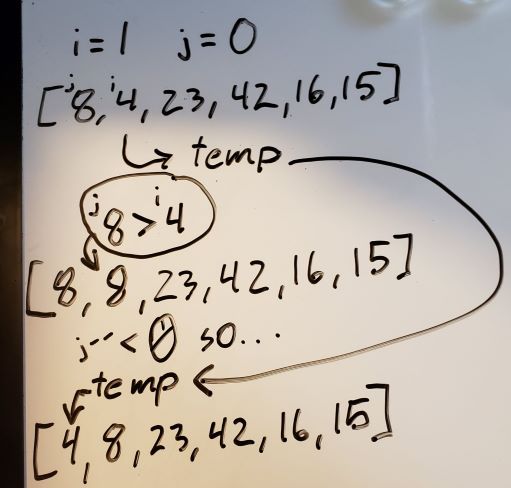 i=1 j=0
[j8, i4, 23, 42, 16, 15]
temp
j8 > i4
[8, 8, 23, 42, 16, 15]
j-- < 0 so...
temp
[4, 8, 23, 42, 16, 15]